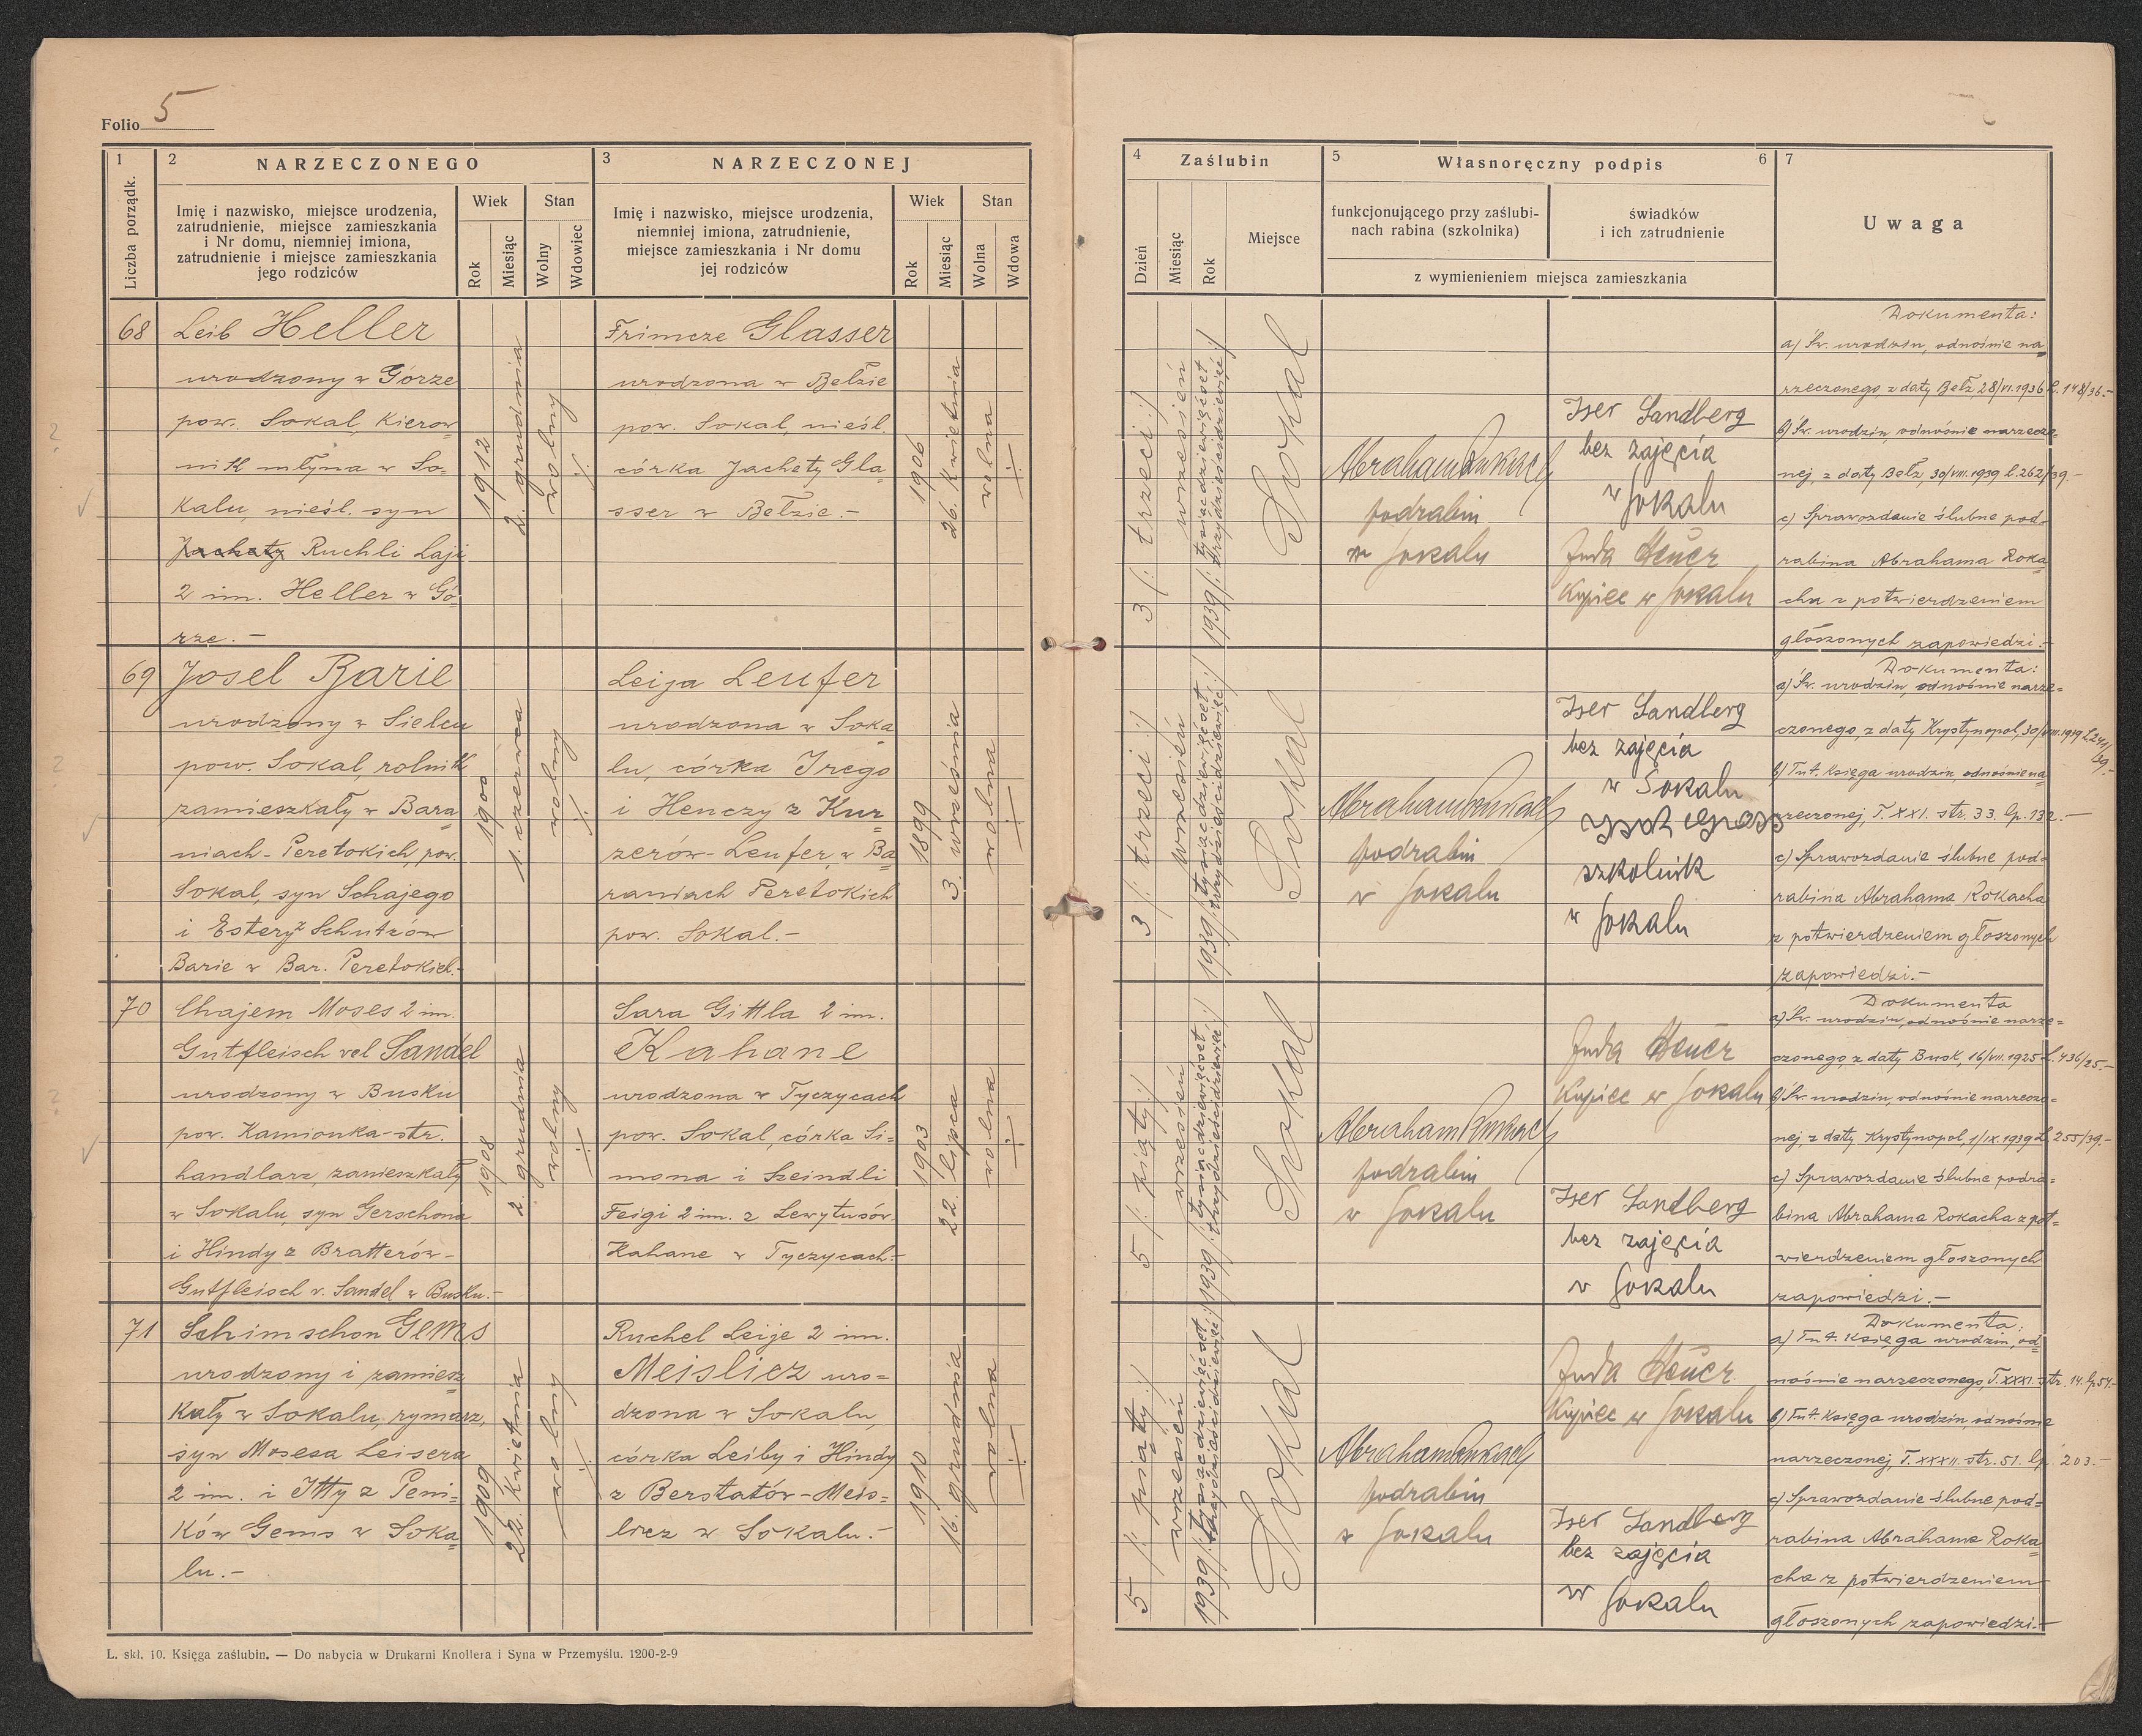 Folio 5
1
2 NARZECZONEGO
3 NARZECZONEJ
Liczba porządk.
Imię i nazwisko, miejsce urodzenia,
zatrudnienie, miejsce zamieszkania
i Nr domu, niemniej imiona,
zatrudnienie i miejsce zamieszkania
jego rodziców
Wiek
Stan
Rok
Miesiąc
Wolny
Wdowiec
Imię i nazwisko, miejsce urodzenia,
niemniej imiona, zatrudnienie,
miejsce zamieszkania i Nr domu
jej rodziców
Wiek
Stan
Rok
Miesiąc
Wolna
Wdowa
4 Zaślubin
5 Własnoręczny podpis 6
7
Dzień
Miesiąc
Rok
Miejsce
funkcjonującego przy zaślubi-
nach rabina (szkolnika)
świadków
i ich zatrudnienie
z wymienieniem miejsca zamieszkania
Uwaga
68
Leib Heller
urodzony w Górze
pow. Sokal, kierow
nik młyna w So-
kalu, nieśl. syn
Jachety Ruchli Laji
2 im. Heller w Gó-
rze.-
1912
2. grudnia
wolny
Frimcze Glasser
urodzona w Bełzie
pow. Sokal, nieśl.
córka Jachety Gla-
sser w Bełzie.-
1906
26. kwietnia
wolna
3 /: trzeci :/
wrzesień
1939 /: tysiącdziewięćset
trzydzieścidziewięć :/
Sokal
Abraham Rokach
podrabin
w Sokalu
Iser Sandberg
bez zajęcia
w Sokalu
Juda Heuer
Kupiec w Sokalu
Dokumenta:
a) Św. urodzin, odnośnie na-
rzeczonego, z daty Bełz 28/VI.1936 L. 148/36.-
b) Św. urodzin, odnośnie narzeczo-
nej, z daty Bełz 30/VIII.1939 l. 262/39.-
c) Sprawozdanie ślubne pod-
rabina Abrahama Roka
cha z potwierdzeniem
głoszonych zapowiedzi.-
69
Josel Barie
urodzony w Sielcu
pow. Sokal, rolnik
zamieszkały w Bara
niach-Peretokich, pow.
Sokal, syn Schajego
i Estery z Schutzów
Barie w Bar. Peretokich.-
1900
1. czerwca
wolny
Leija Leufer
urodzona w Soka
lu, córka Irego
i Henczy z Kur
zerów-Leufer w Ba
raniach Peretokich
pow. Sokal.-
1899
3. września
wolna
3 /: trzeci :/
wrzesień
1939 /: tysiącdziewięćset
trzydzieścidziewięć :/
Sokal
Abraham Rokach
podrabin
w Sokalu
Iser Sandberg
bez zajęcia
w Sokalu
szkolnik
w Sokalu
Dokumenta:
a) Św. urodzin, odnośnie narze-
czonego, z daty Krystynopol, 30/VIII.1939 L.241/39.-
b) Tut. Księga urodzin, odnośnie na
rzeczonej, T. XXI. str. 33. lp. 132.-
c) Sprawozdanie ślubne pod-
rabina Abrahama Rokacha
z potwierdzeniem głoszonych
zapowiedzi.-
70
Chajem Moses 2 im.
Gutfleisch vel Sandel
urodzony w Busku
pow. Kamionka-str.
handlarz, zamieszkały
w Sokalu, syn Gerschona
i Hindy z Bratterów-
Gutfleisch v. Sandel w Busku.-
1908
2. grudnia
wolny
Sara Gittla 2 im.
Kahane
urodzona w Tyczycach
pow. Sokal, córka Si-
mona i Szeindli
Feigi 2 im. z Lewytusów
Kahane w Tyczycach.-
1903
22. lipca
wolna
5 /: piąty :/
wrzesień
1939 /: tysiącdziewięćset
trzydzieścidziewięć :/
Sokal
Abraham Rokach
podrabin
w Sokalu
Juda Heuer
Kupiec w Sokalu
Iser Sandberg
bez zajęcia
w Sokalu
Dokumenta
a) Św. urodzin, odnośnie narze-
czonego, z daty Busk, 16/VII.1925 L. 436/25.-
b) Św. urodzin, odnośnie narzeczo-
nej, z daty Krystynopol, 1/IX.1939 L. 255/39.-
c) Sprawozdanie ślubne podra-
bina Abrahama Rokacha z pot-
wierdzeniem głoszonych
zapowiedzi.-
71
Schimschon Gems
urodzony i zamiesz
kały w Sokalu, rymarz,
syn Mosesa Leisera
2 im. i Itty z Peni-
ków Gems w Soka
lu.-
1909
22. kwietnia
wolny
Ruchel Leije 2 im.
Meislicz uro-
dzona w Sokalu,
córka Leiby i Hindy
z Berstatów-Meis-
licz w Sokalu.-
1910
16. grudnia
wolna
5 /: piąty :/
wrzesień
1939 /: tysiącdziewięćset
trzydzieścidziewięć :/
Sokal
Abraham Rokach
podrabin
w Sokalu
Juda Heuer
Kupiec w Sokalu
Iser Sandberg
bez zajęcia
w Sokalu
Dokumenta:
a) Tut. Księga urodzin, od-
nośnie narzeczonego, T. XXXI. str. 14. lp 54.-
b) Tut. Księga urodzin, odnośnie
narzeczonej, T. XXXII. str. 51. lp. 203.-
c) Sprawozdanie ślubne pod-
rabina Abrahama Roka-
cha z potwierdzeniem
głoszonych zapowiedzi.-
L. skł. 10. Księga zaślubin. — Do nabycia w Drukarni Knollera i Syna w Przemyślu. 1200-2-9